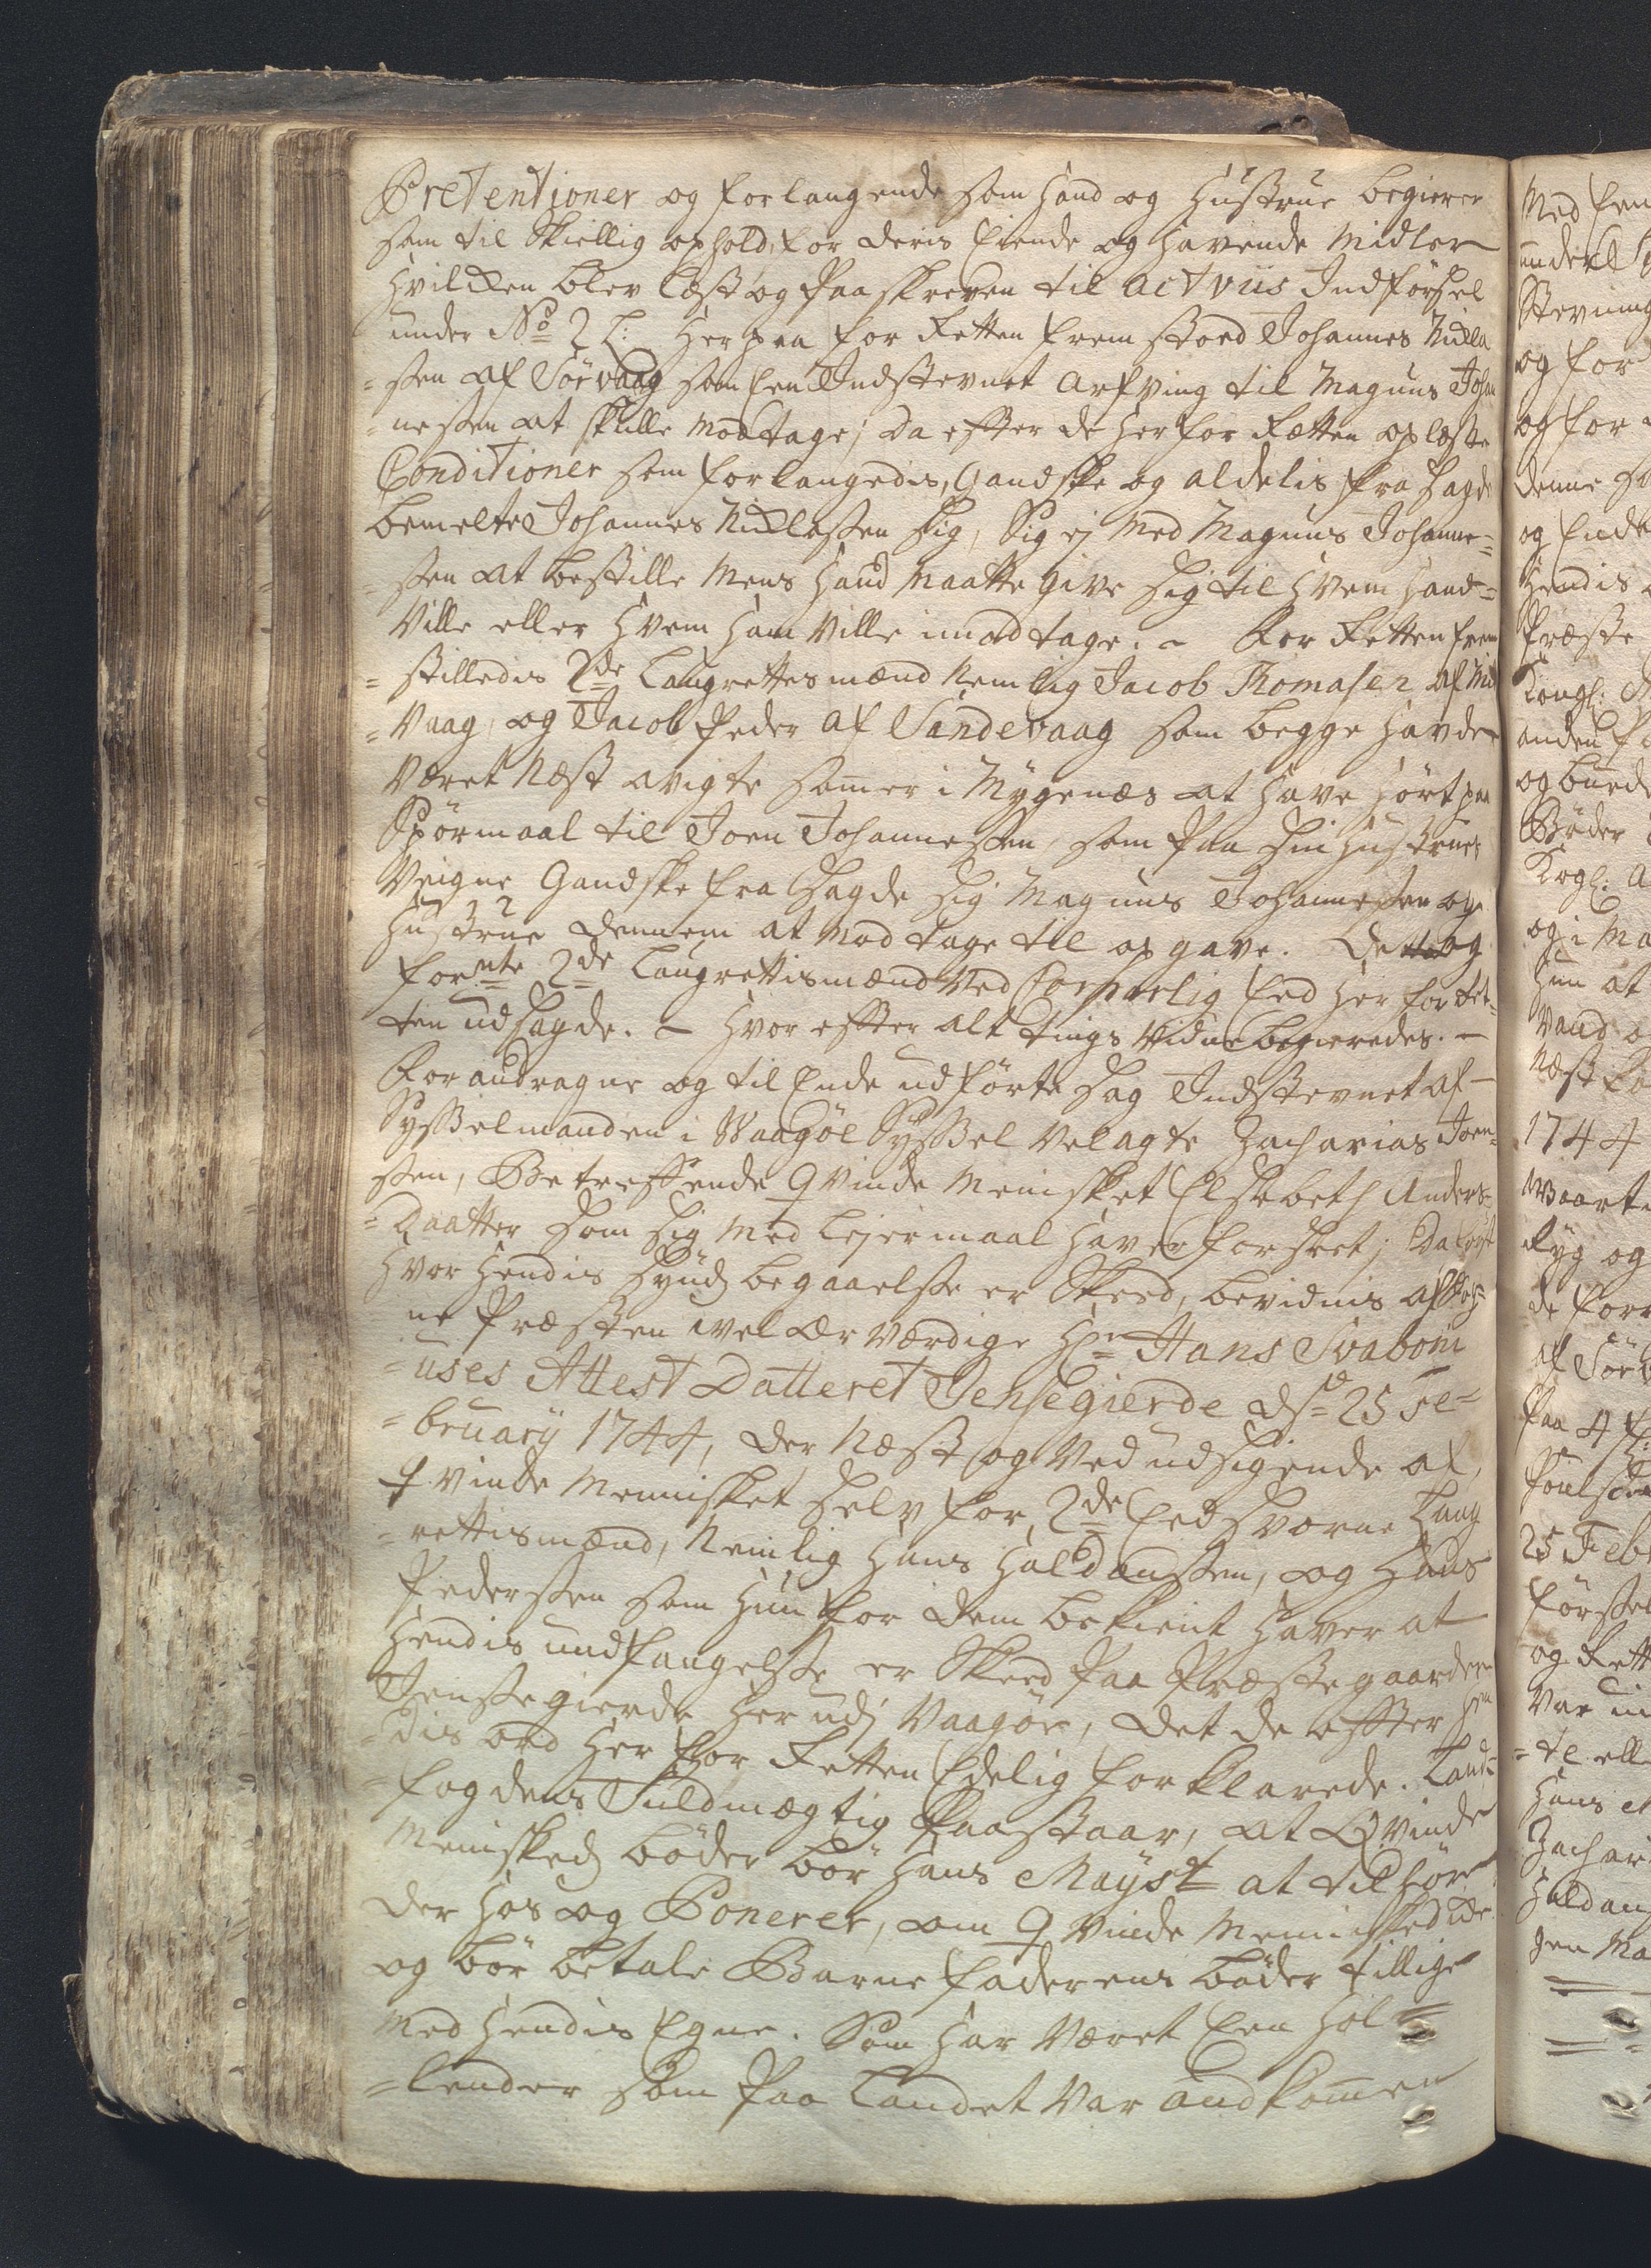 Pretentioner og forlangende som hand og Hustrue begierer
som til skiellig ophold, for deris Eiende og havende Midler
hvilken blev læst og paaskreven til actviis Indførsel
under No 2 L: Her paa for Retten frem stoed Johannes Nikla
=sen af Sørvaag som een Indstevnet Arfving til Magnus Johan
=nesen at skulle modtage; da efter de her for Retten oplæste
Conditioner som forlangedis, Gandske og aldelis fra sagde
bemelte Johannes Niklasen sig, Sig ej med Magnus Johanne=
=sen at bestille mens hand maatte give sig til hvem hand=
Ville eller hvem ham Ville imodtage. - For Retten frem
=stilledis 2de Laugrettes mænd nemlig Jacob Thomasen af Mid
=Vaag, og Jacob Peder af Sandevaag som begge havde
været næst avigte sommer i Mygenæs at have hørt paa
Spørmaal til Joen Johannessen, som paa sin Hustrues
Veigne Gandske fra sagde sig Magnus Johannesen og
Hustrue dennem at modtage til opgave. Dette og
formte 2de Laugrettismænd ved Corporlig Eed her for Ret=
ten udsagde. - Hvor efter alt tings vidne begieredes. -
For andragne og til Ende udførte sag Indstevnet af -
Sysselmanden i Waagøe Syssel Velagte Zacharias Joen=
sen, Betreffende Qvinde Menisket Elsebeth Anders=
=Daatter som sig med Lejermaal haver forseet; Da først
hvor hendis Synds begaaelse er skeed, bevidnis af Sog=
ne Præsten Velærværdige Hr Hans Svaboni
=uses Attest Datteret Jensegierde ds 25 Fe=
=bruarij 1744, der næst og ved udsigende af
qvinde Mennisket selv for 2de Eedsvorne Laug
=rettismænd, Nemlig Hans Haldansen, og Hans
Pedersen som hun for dem bekient haver at
hendis undfangelse er skeed paa Præstegaarden
Jensegierde her udj Vaagøe, det de efter hen
=dis ord her for Retten Edelig forklarede. Land=
=fogdens Fuldmægtig paastaar, at Qvinde
Menisked bøder bør hans Mayst at tilhøre
der hos og Ponerer, om Qvinde Mennisked icke
og bør betale Barne faderens bøder tillige
med hendis Egne. Som har været Een Hol=
=lender som paa Landet var andkommen